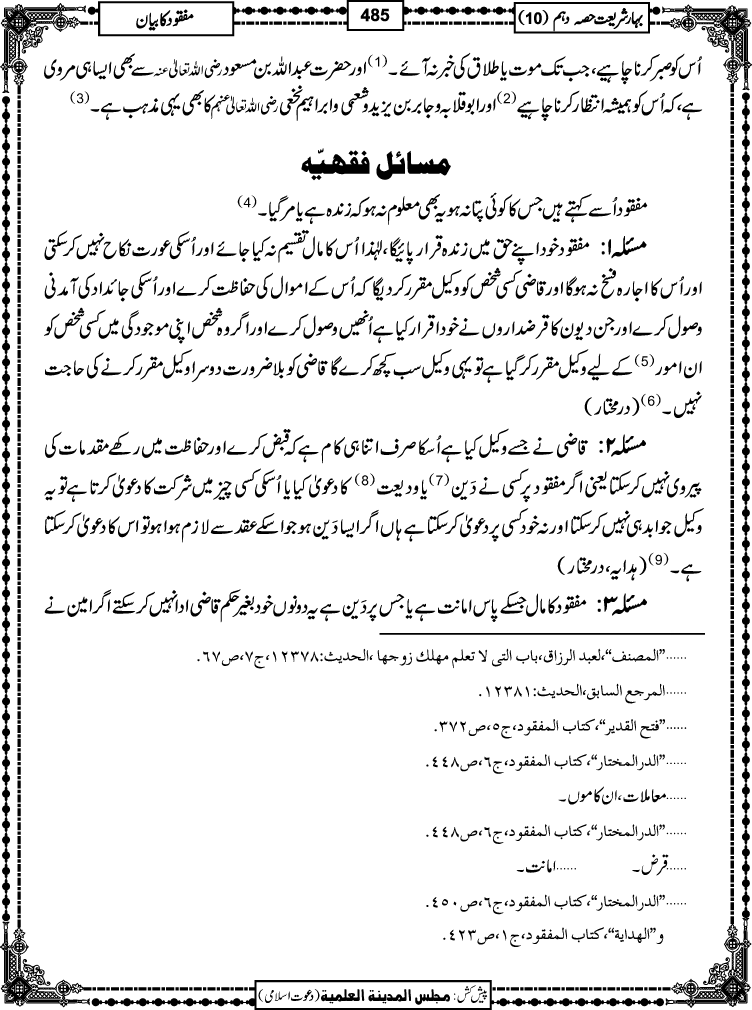 بہارشریعت حصہ دہم (10)
485
مفقود کا بیان
اُس کو صبر کرنا چاہیے، جب تک موت یا طلاق کی خبر نہ آئے۔(1) اور حضرت عبداللہ بن مسعود رضی اللہ تعالیٰ عنہ سے بھی ایسا ہی مروی
ہے، کہ اُس کو ہمیشہ انتظار کرنا چاہیے(2) اور ابوقلابہ و جابر بن یزید و شعبی و ابراہیم نخعی رضی اللہ تعالیٰ عنہم کا بھی یہی مذہب ہے۔(3)
مسائل فقهيّه
مفقود اُسے کہتے ہیں جس کا کوئی پتا نہ ہو یہ بھی معلوم نہ ہو کہ زندہ ہے یا مر گیا۔(4)
مسئلہ ۱: مفقود خود اپنے حق میں زندہ قرار پائیگا، لہٰذا اُس کا مال تقسیم نہ کیا جائے اور اُسکی عورت نکاح نہیں کرسکتی
اور اُس کا اجارہ فسخ نہ ہوگا اور قاضی کسی شخص کو وکیل مقرر کردیگا کہ اُس کے اموال کی حفاظت کرے اور اُسکی جائداد کی آمدنی
وصول کرے اور جن دیون کا قرضداروں نے خود اقرار کیا ہے اُنھیں وصول کرے اور اگر وہ شخص اپنی موجودگی میں کسی شخص کو
ان امور(5) کے لیے وکیل مقرر کر گیا ہے تو یہی وکیل سب کچھ کرے گا قاضی کو بلاضرورت دوسرا وکیل مقرر کرنے کی حاجت
نہیں۔(6) (درمختار)
مسئلہ ۲: قاضی نے جسے وکیل کیا ہے اُسکا صرف اتنا ہی کام ہے کہ قبض کرے اور حفاظت میں رکھے مقدمات کی
پیروی نہیں کرسکتا یعنی اگر مفقود پر کسی نے دَین(7) یا ودیعت(8) کا دعویٰ کیا یا اُسکی کسی چیز میں شرکت کا دعویٰ کرتا ہے تو یہ
وکیل جوابدہی نہیں کرسکتا اور نہ خود کسی پر دعویٰ کرسکتا ہے ہاں اگر ایسا دَین ہو جو اسکے عقد سے لازم ہوا ہو تو اس کا دعویٰ کرسکتا
ہے۔(9) (ہدایہ، درمختار)
مسئلہ ۳: مفقود کا مال جسکے پاس امانت ہے یا جس پر دَین ہے یہ دونوں خود بغیر حکم قاضی ادا نہیں کرسکتے اگر امین نے
......”المصنف“،لعبد الرزاق،باب التی لا تعلم مهلك زوجها ،الحدیث:١٢٣٧٨،ج٧،ص٦٧.
......المرجع السابق،الحدیث:١٢٣٨١.
......”فتح القدیر“، کتاب المفقود،ج٥،ص٣٧٢.
......”الدرالمختار“، کتاب المفقود،ج٦،ص٤٤٨.
......معاملات، ان کاموں۔
......”الدرالمختار“، کتاب المفقود،ج٦،ص٤٤٨.
......قرض۔ ......امانت۔
......”الدرالمختار“، کتاب المفقود،ج٦،ص٤٥٠.
و”الهدایة“، کتاب المفقود،ج١،ص٤٢٣.
پیش کش: مجلس المدینة العلمیة (دعوت اسلامی)